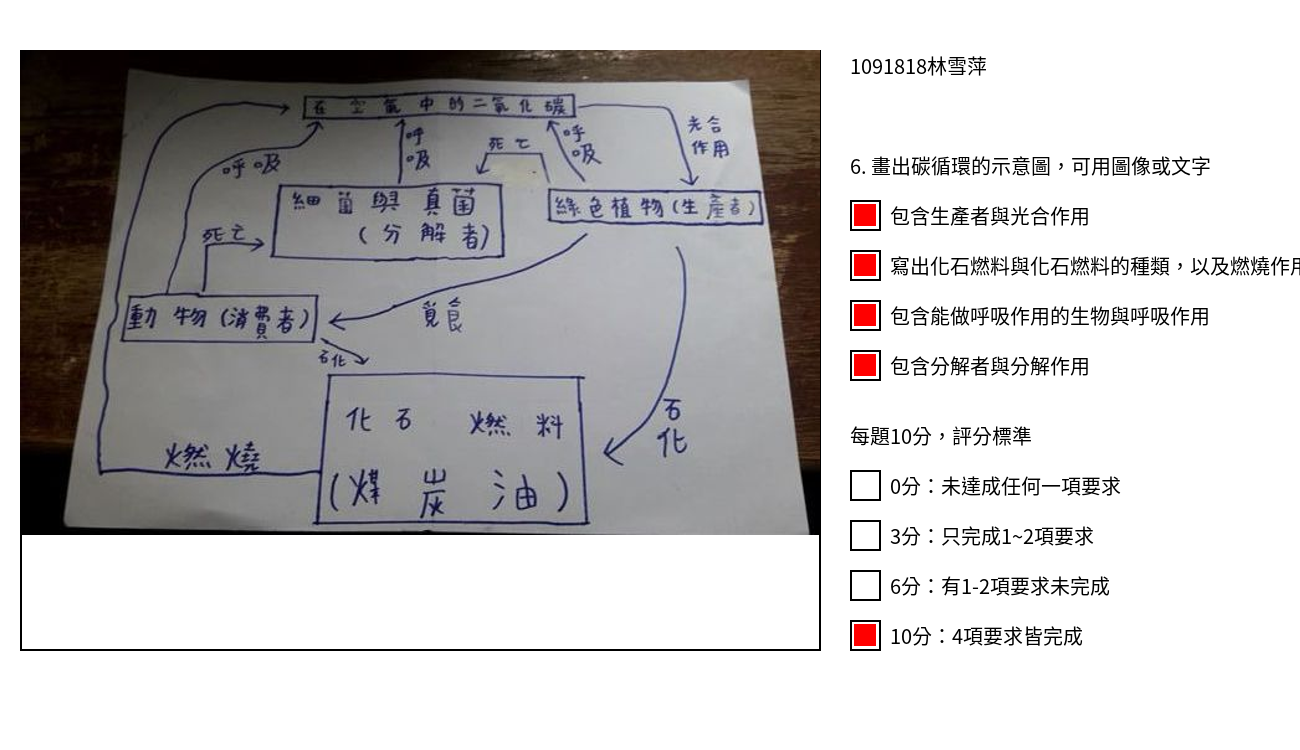 在空氣中的二氧化碳
光合
作用
呼吸
呼
吸
死亡
呼
吸
細菌與真菌
(分解者)
綠色植物(生產者)
死亡
動物(消費者)
覓食
石化
化石 燃料
(煤 炭 油)
石
化
燃燒
1091818林雪萍
6. 畫出碳循環的示意圖，可用圖像或文字
包含生產者與光合作用
寫出化石燃料與化石燃料的種類，以及燃燒作用
包含能做呼吸作用的生物與呼吸作用
包含分解者與分解作用
每題10分，評分標準
0分：未達成任何一項要求
3分：只完成1~2項要求
6分：有1-2項要求未完成
10分：4項要求皆完成